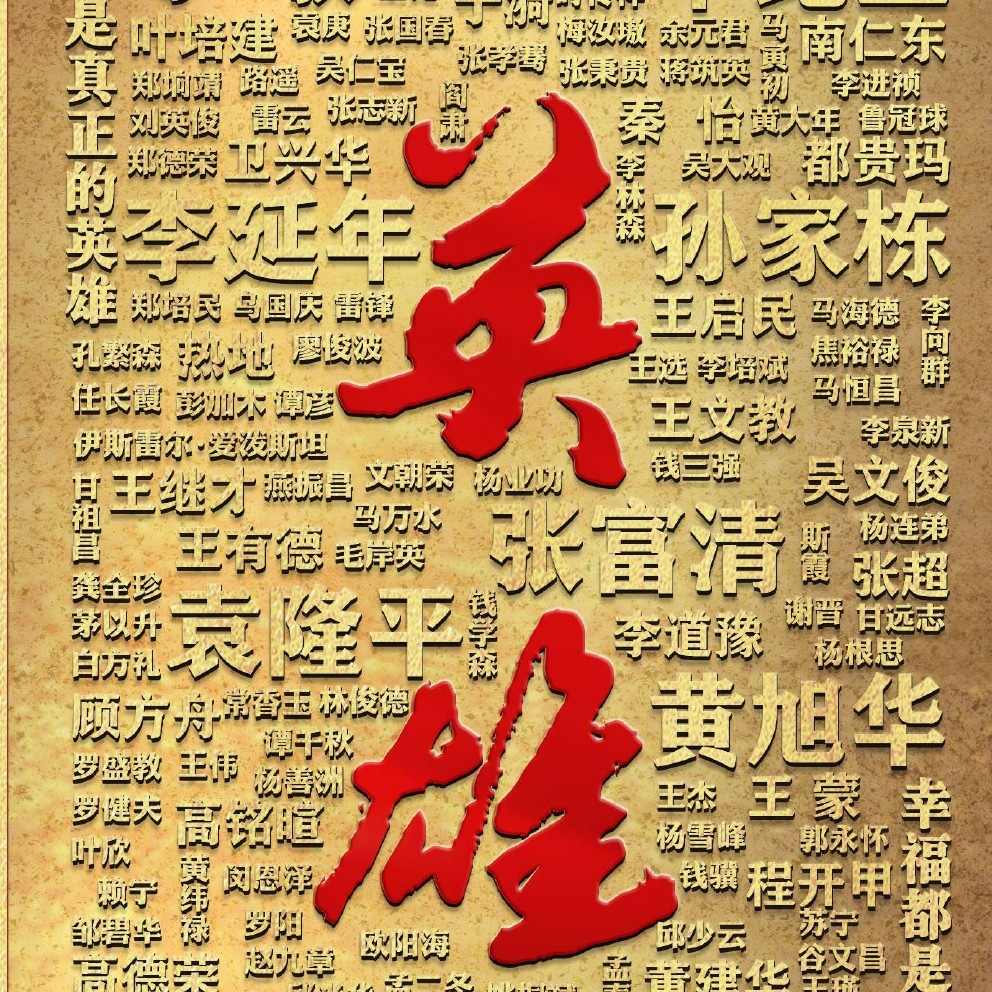 是真正的英雄
叶培建
袁庚
张国春
张孝骞
梅汝璈
余元君
马寅初
南仁东
郑垧靖
路遥
吴仁宝
张秉贵
蒋筑英
李进祯
刘英俊
雷云
张志新
阎肃
秦怡
黄大年
鲁冠球
郑德荣
卫兴华
李林森
吴大观
都贵玛
李延年
孙家栋
郑培民
乌国庆
雷锋
王启民
马海德
李向群
孔繁森
热地
廖俊波
王选
李培斌
焦裕禄
任长霞
彭加木
谭彦
马恒昌
王文教
李泉新
伊斯雷尔·爱泼斯坦
甘祖昌
王继才
燕振昌
文朝荣
杨业功
钱三强
吴文俊
马万水
张富清
斯霞
杨连弟
王有德
毛岸英
张超
龚全珍
茅以升
袁隆平
钱学森
李道豫
谢晋
甘远志
白万礼
杨根思
顾方舟
常香玉
林俊德
黄旭华
罗盛教
王伟
谭千秋
杨善洲
王杰
王蒙
罗健夫
高铭暄
杨雪峰
郭永怀
叶欣
黄纬禄
闵恩泽
钱骥
程开甲
赖宁
邹碧华
罗阳
欧阳海
邱少云
苏宁
高德荣
赵九章
孟二冬
黄建华
谷文昌
英雄
幸福都是